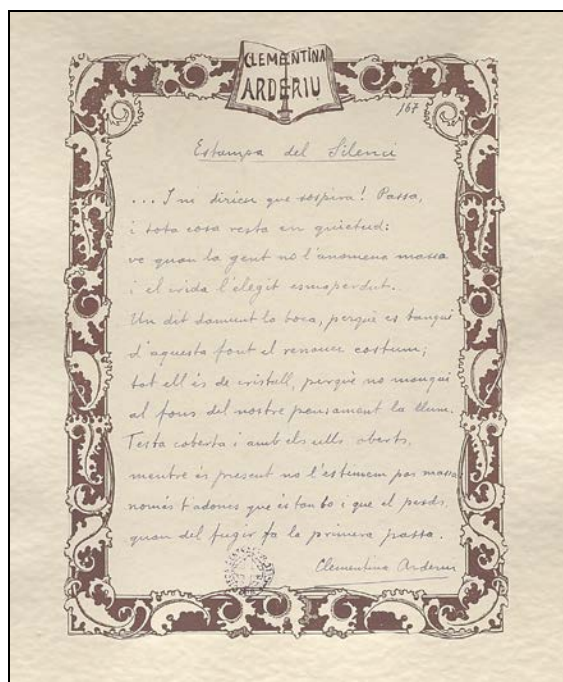 CLEMENTINA
ARDERIU
167
Estampa del Silenci
... I ni dirieu que sospira! Passa,
i tota cosa resta en quietud:
ve quan la gent no l'anomena massa
i el crida l'elegit esmaperdut.
Un dit damunt la boca, perquè es tanqui
d'aquesta font el renouer costum;
tot ell és de cristall, perquè no manqui
al fons del nostre pensament la llum.
Testa coberta i amb els ulls oberts,
mentre és present no l'estimem pas massa
només t'adones que és tan bo i que el perds,
quan del fugir fa la primera passa.
Clementina Arderiu